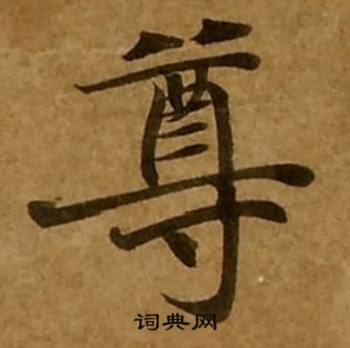 尊
词典网